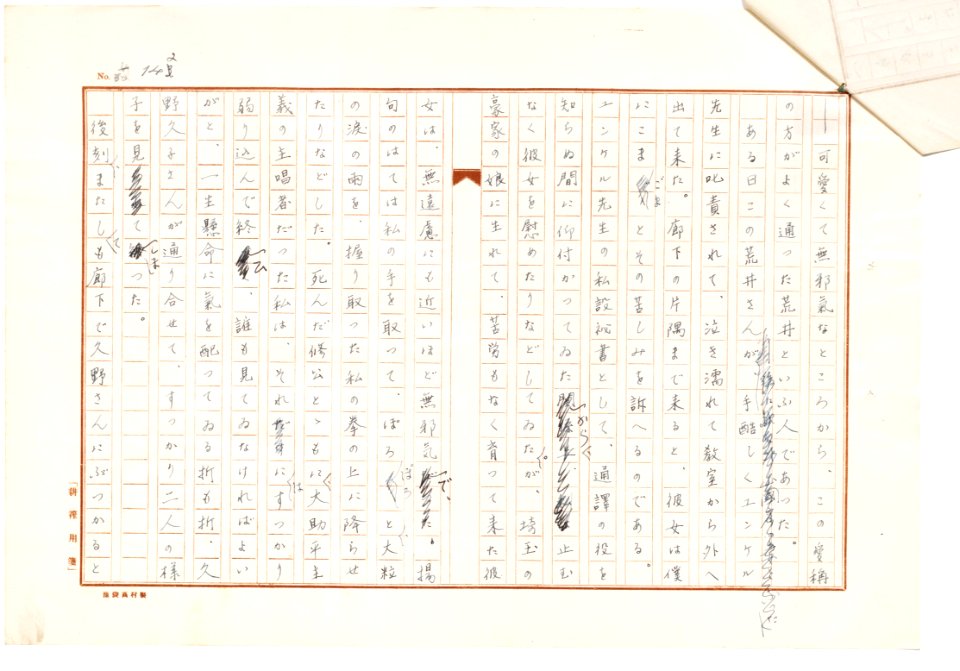 可愛くて無邪氣なところから、この愛稱
の方がよく通つた荒井といふ人であつた。
ある日この荒井さんが、手酷しくエンケル
先生に叱責されて、泣き濡れて教室から外へ
出て来た。廊下の片隅まで来ると、彼女は僕
にこまごまとその苦しみを訴へるのである。
エンケル先生の私設秘書として、通譯の役を
知らぬ間に仰付かつてゐたからく止む
なく彼女を慰めたりなどしてゐたが、埼玉の
豪家の娘に生れて、苦労もなく育つて来た彼
女は、無遠慮にも近いほど無邪気で、揚
句のはては私の手を取つて、ぽろぽろと大粒
の涙の雨を、握り取つた私の拳の上に降らせ
たりなどした。死んだ修公とゝもに大助平主
義の主唱者だつた私は、それにはすつかり
弱り込んで終ひ、誰も見てゐなければよい
がと、一生懸命に氣を配つてゐる折も折、久
野久子さんが通り合せて、すつかり二人の様
子を見てしまつた。
後刻またしても廊下で久野さんにぶつかると
No. 142